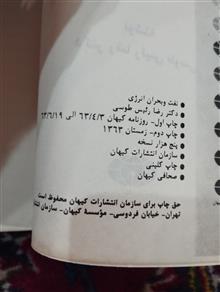 ● نفت وبحران انرژی
● دکتر رضا رئیس طوسی
● چاپ اول- روزنامه کیهان ۶۳/۴/۳ الی ۶۳/۶/۱۹
● چاپ دوم- زمستان ۱۳۶۳
● پنج هزار نسخه
● سازمان انتشارات کیهان
● چاپ گلینی
● صحافی کیهان
حق چاپ برای سازمان انتشارات کیهان محفوظ است
تهران- خیابان فردوسی- مؤسسه کیهان- سازمان